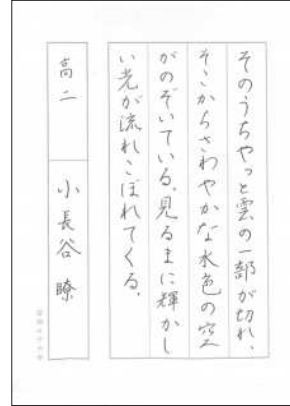 そのうちやっと雲の一部が切れ、
そこからさわやかな水色の空
がのぞいている。見るまに輝かし
い光が流れこぼれてくる。
高二 小長谷瞭